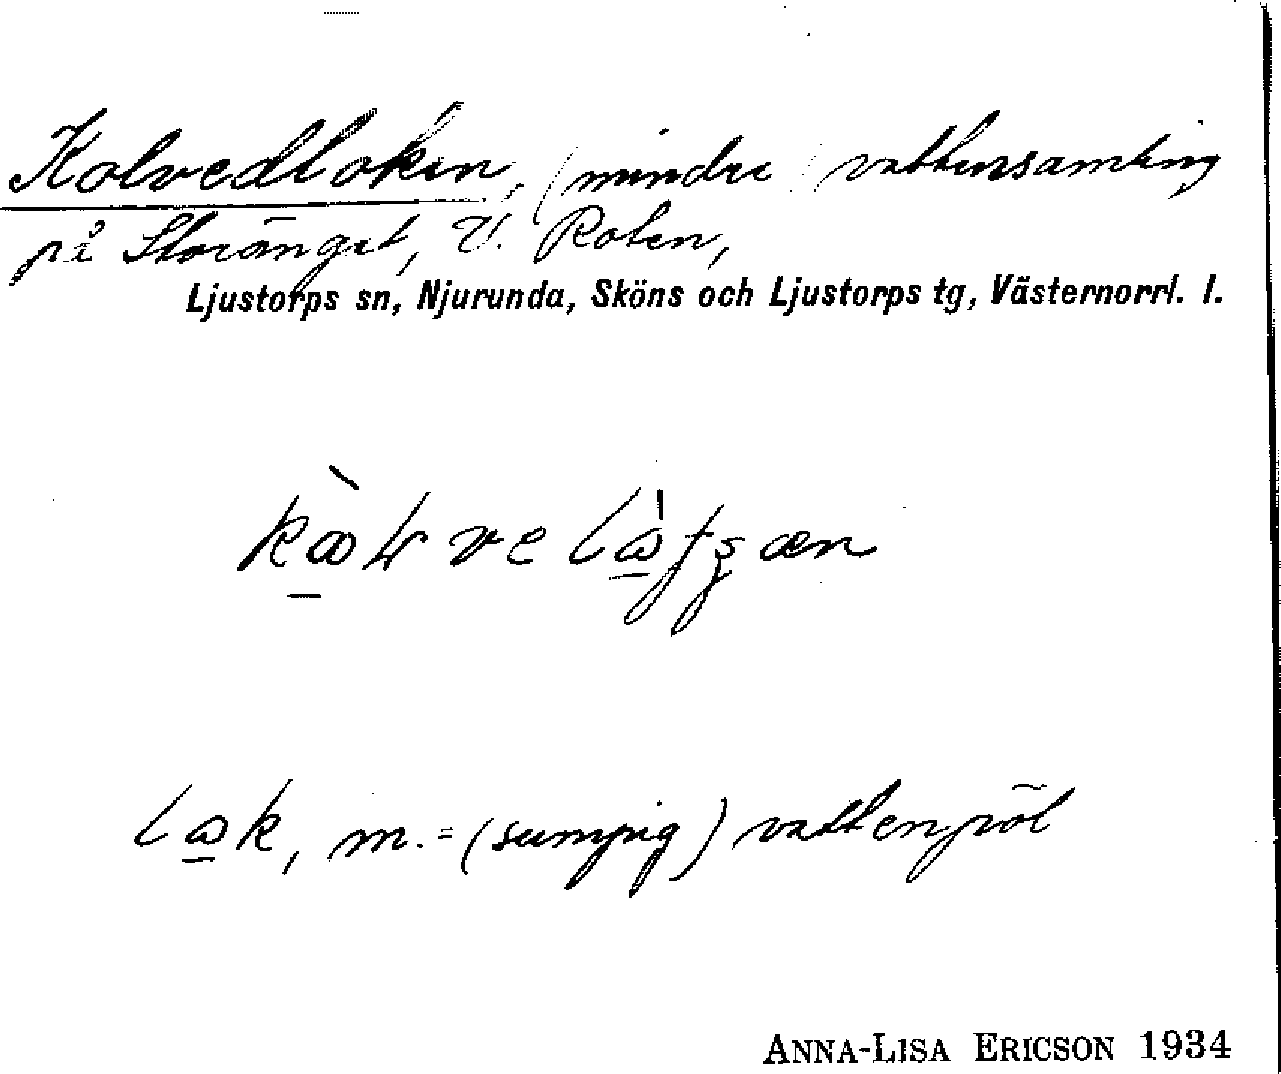 Kolvedloken, (mindre) vattensamling
på Storänget, V. Roten,
Ljustorps sn, Njurunda, Sköns och Ljustorps tg, Västernorrl. l.
lωk, m. = (sumpig) vattenpöl
ANNA-LISA ERICSON 1934